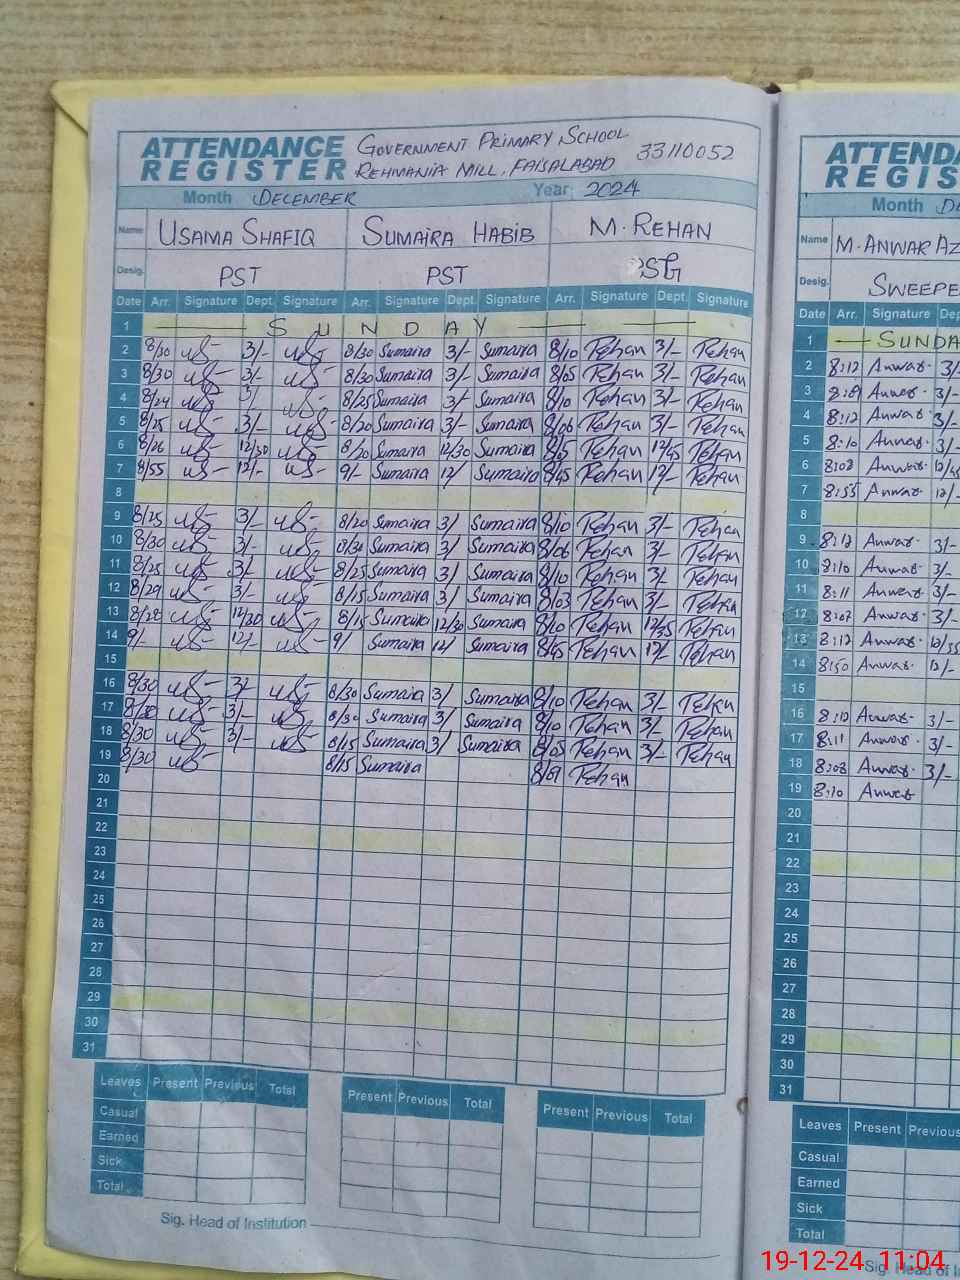 ATTENDANCE REGISTER GOVERNMENT PRIMARY SCHOOL 33110052
REHMANIA MILL, FAISALABAD
Month DECEMBER Year 2024
Name USAMA SHAFIQ SUMAIRA HABIB M. REHAN
Desig. PST PST
Date Arr. Signature Dept. Signature Arr. Signature Dept. Signature Arr. Signature Dept. Signature
1 SUNDAY
2 8/30 3/- 8/30 Sumaira 3/- Sumaira 8/10 Rehan 3/- Rehan
3 8/30 3/- 8/30 Sumaira 3/- Sumaira 8/05 Rehan 3/- Rehan
4 8/24 3/ 8/25 Sumaira 3/- Sumaira 8/10 Rehan 3/- Rehan
5 8/25 3/- 8/20 Sumaira 3/- Sumaira 8/06 Rehan 3/- Rehan
6 8/26 12/30 8/20 Sumaira 12/30 Sumaira Rehan 12/45 Rehan
7 8/55 12/- 9/- Sumaira 12/ Sumaira 8/45 Rehan 12/- Rehan
8
9 8/25 3/- 8/20 Sumaira 3/ Sumaira 8/10 Rehan 3/- Rehan
10 8/30 3/- 8/30 Sumaira 3/ Sumaira 8/06 Rehan 3/- Rehan
11 8/25 3/ 8/25 Sumaira 3/ Sumaira 8/10 Rehan 3/- Rehan
12 8/29 3/- 8/15 Sumaira 3/ Sumaira 8/03 Rehan 3/- Rehan
13 8/28 12/30 8/15 Sumaira 12/30 Sumaira 8/10 Rehan 12/35 Rehan
14 9/- 12/- 9/ Sumaira 12/ Sumaira 8/45 Rehan 12/- Rehan
15
16 8/30 3/- 8/30 Sumaira 3/ Sumaira 8/10 Rehan 3/- Rehan
17 8/30 3/- 8/30 Sumaira 3/ Sumaira 8/10 Rehan 3/- Rehan
18 8/30 3/- 8/15 Sumaira 3/ Sumaira 8/05 Rehan 3/- Rehan
19 8/30 8/15 Sumaira Rehan
20
21
22
23
24
25
26
27
28
29
30
31
Leaves Present Previous Total Present Previous Total Present Previous Total
Casual
Earned
Sick
Total
Sig. Head of Institution
Month
Name M. ANWAR
Desig.
Date Arr. Signature
1
2 8:12 Anwar 3/-
3 Anwar 3/-
4 8:12 Anwar 3/-
5 8:10 Anwar 3/-
6 8:08 Anwar
7 8:55 Anwar 12/-
8
9 8:12 Anwar 3/-
10 8:10 Anwar 3/-
11 8:11 Anwar 3/-
12 8:07 Anwar 3/-
13 8:12 Anwar
14 8:50 Anwar 12/-
15
16 8:10 Anwar 3/-
17 8:11 Anwar 3/-
18 8:08 Anwar 3/-
19 8:10 Anwar
20
21
22
23
24
25
26
27
28
29
30
31
Leaves Present Previous
Casual
Earned
Sick
Total
Sig. Head of
19-12-24 11:04